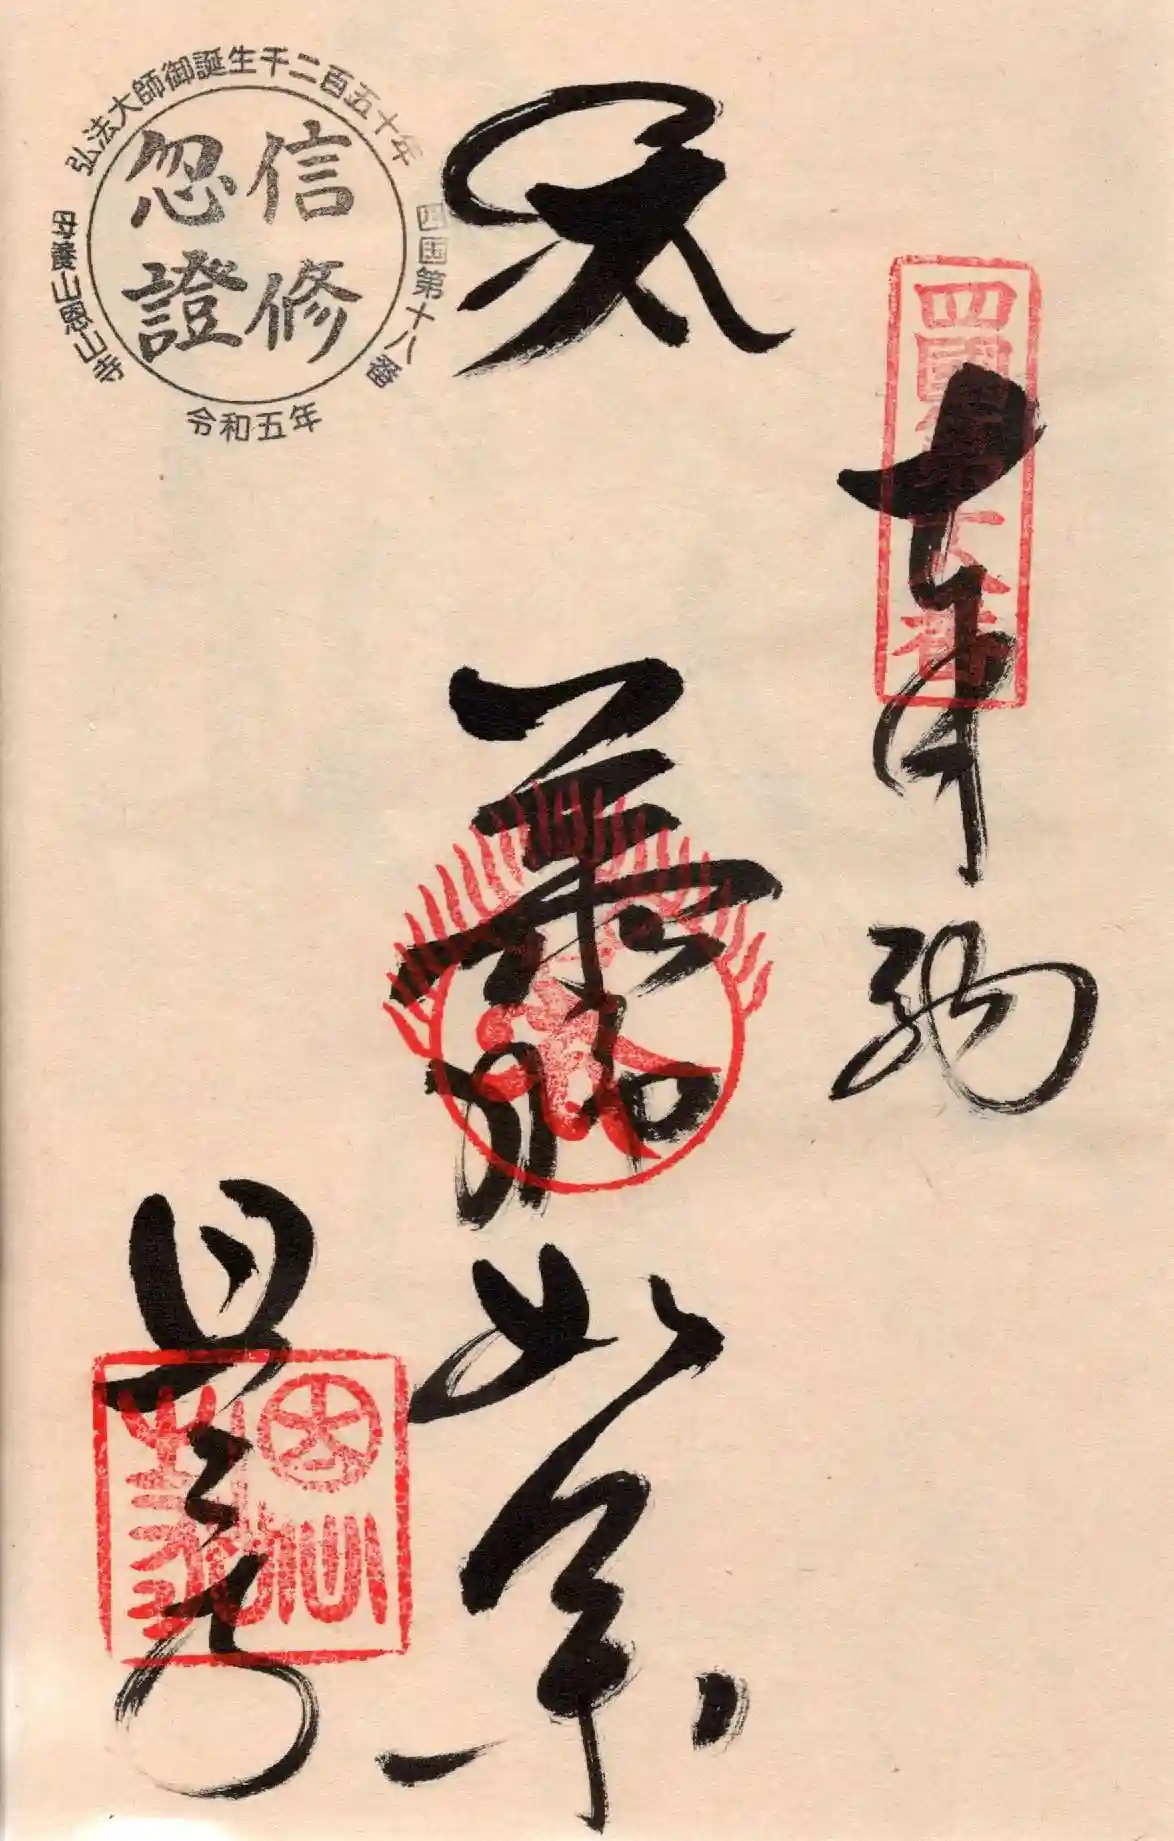 弘法大師御誕生千二百五十年
四国第十八番
母養山恩山寺
令和五年
信修
忽證
四國第十八番
奉納
薬師如来
恩山寺